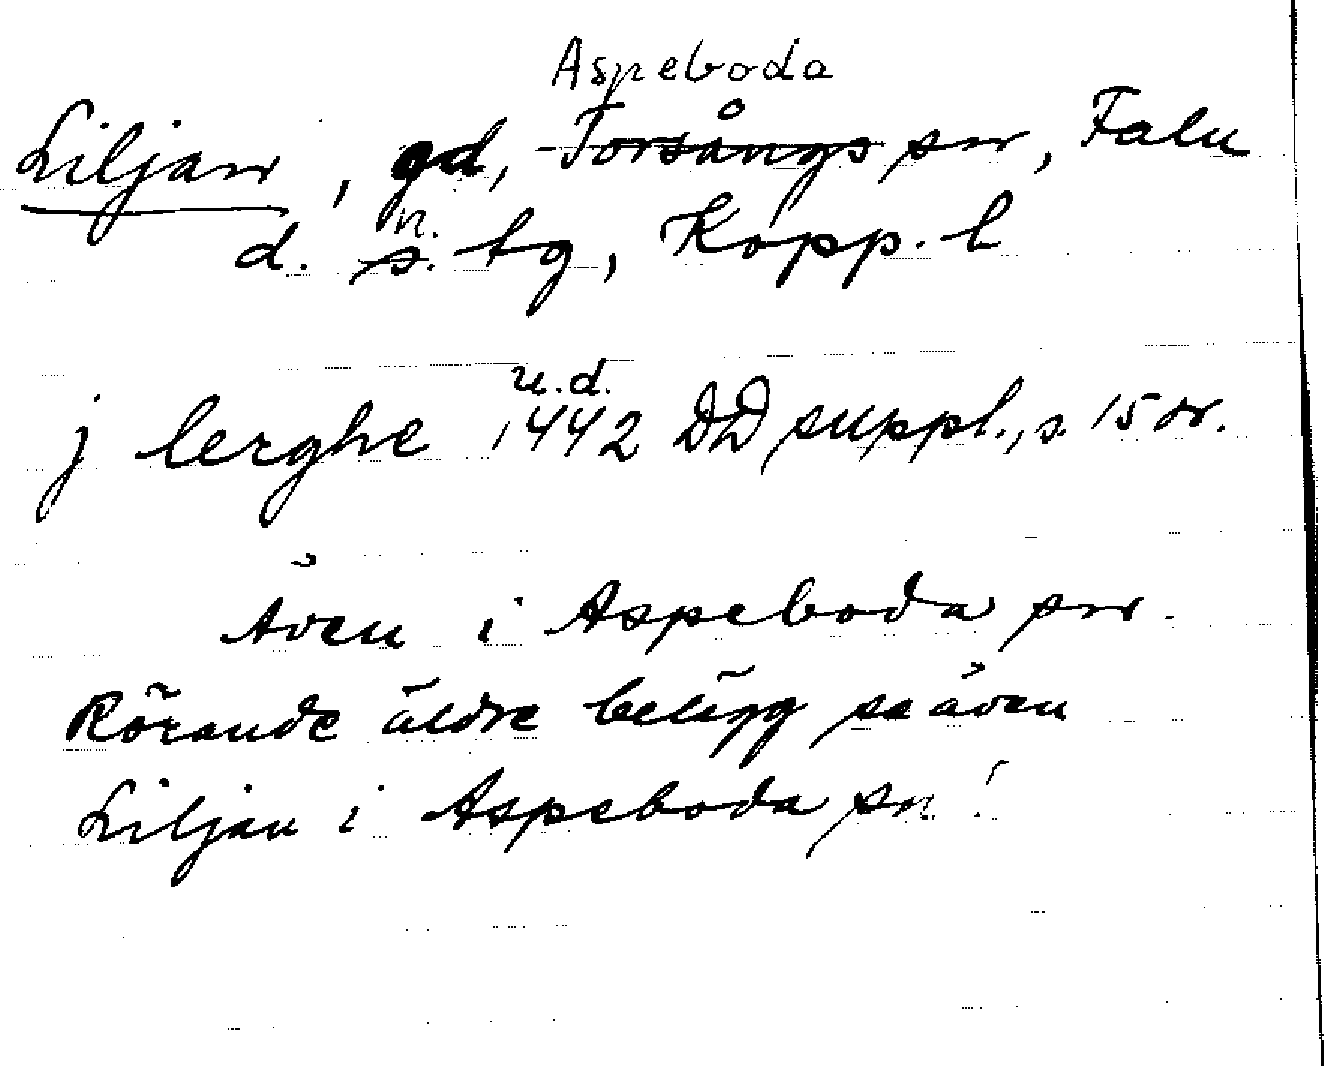 Aspeboda
Liljan, gd, Torsångs sn, Falu
n.
d. s. tg, Kopp. l
u.d.
j lerghe 1442 DD suppl., s. 15 or.
Även i Aspeboda sn.
Rörande äldre belägg se även
Liljan i Aspeboda sn!